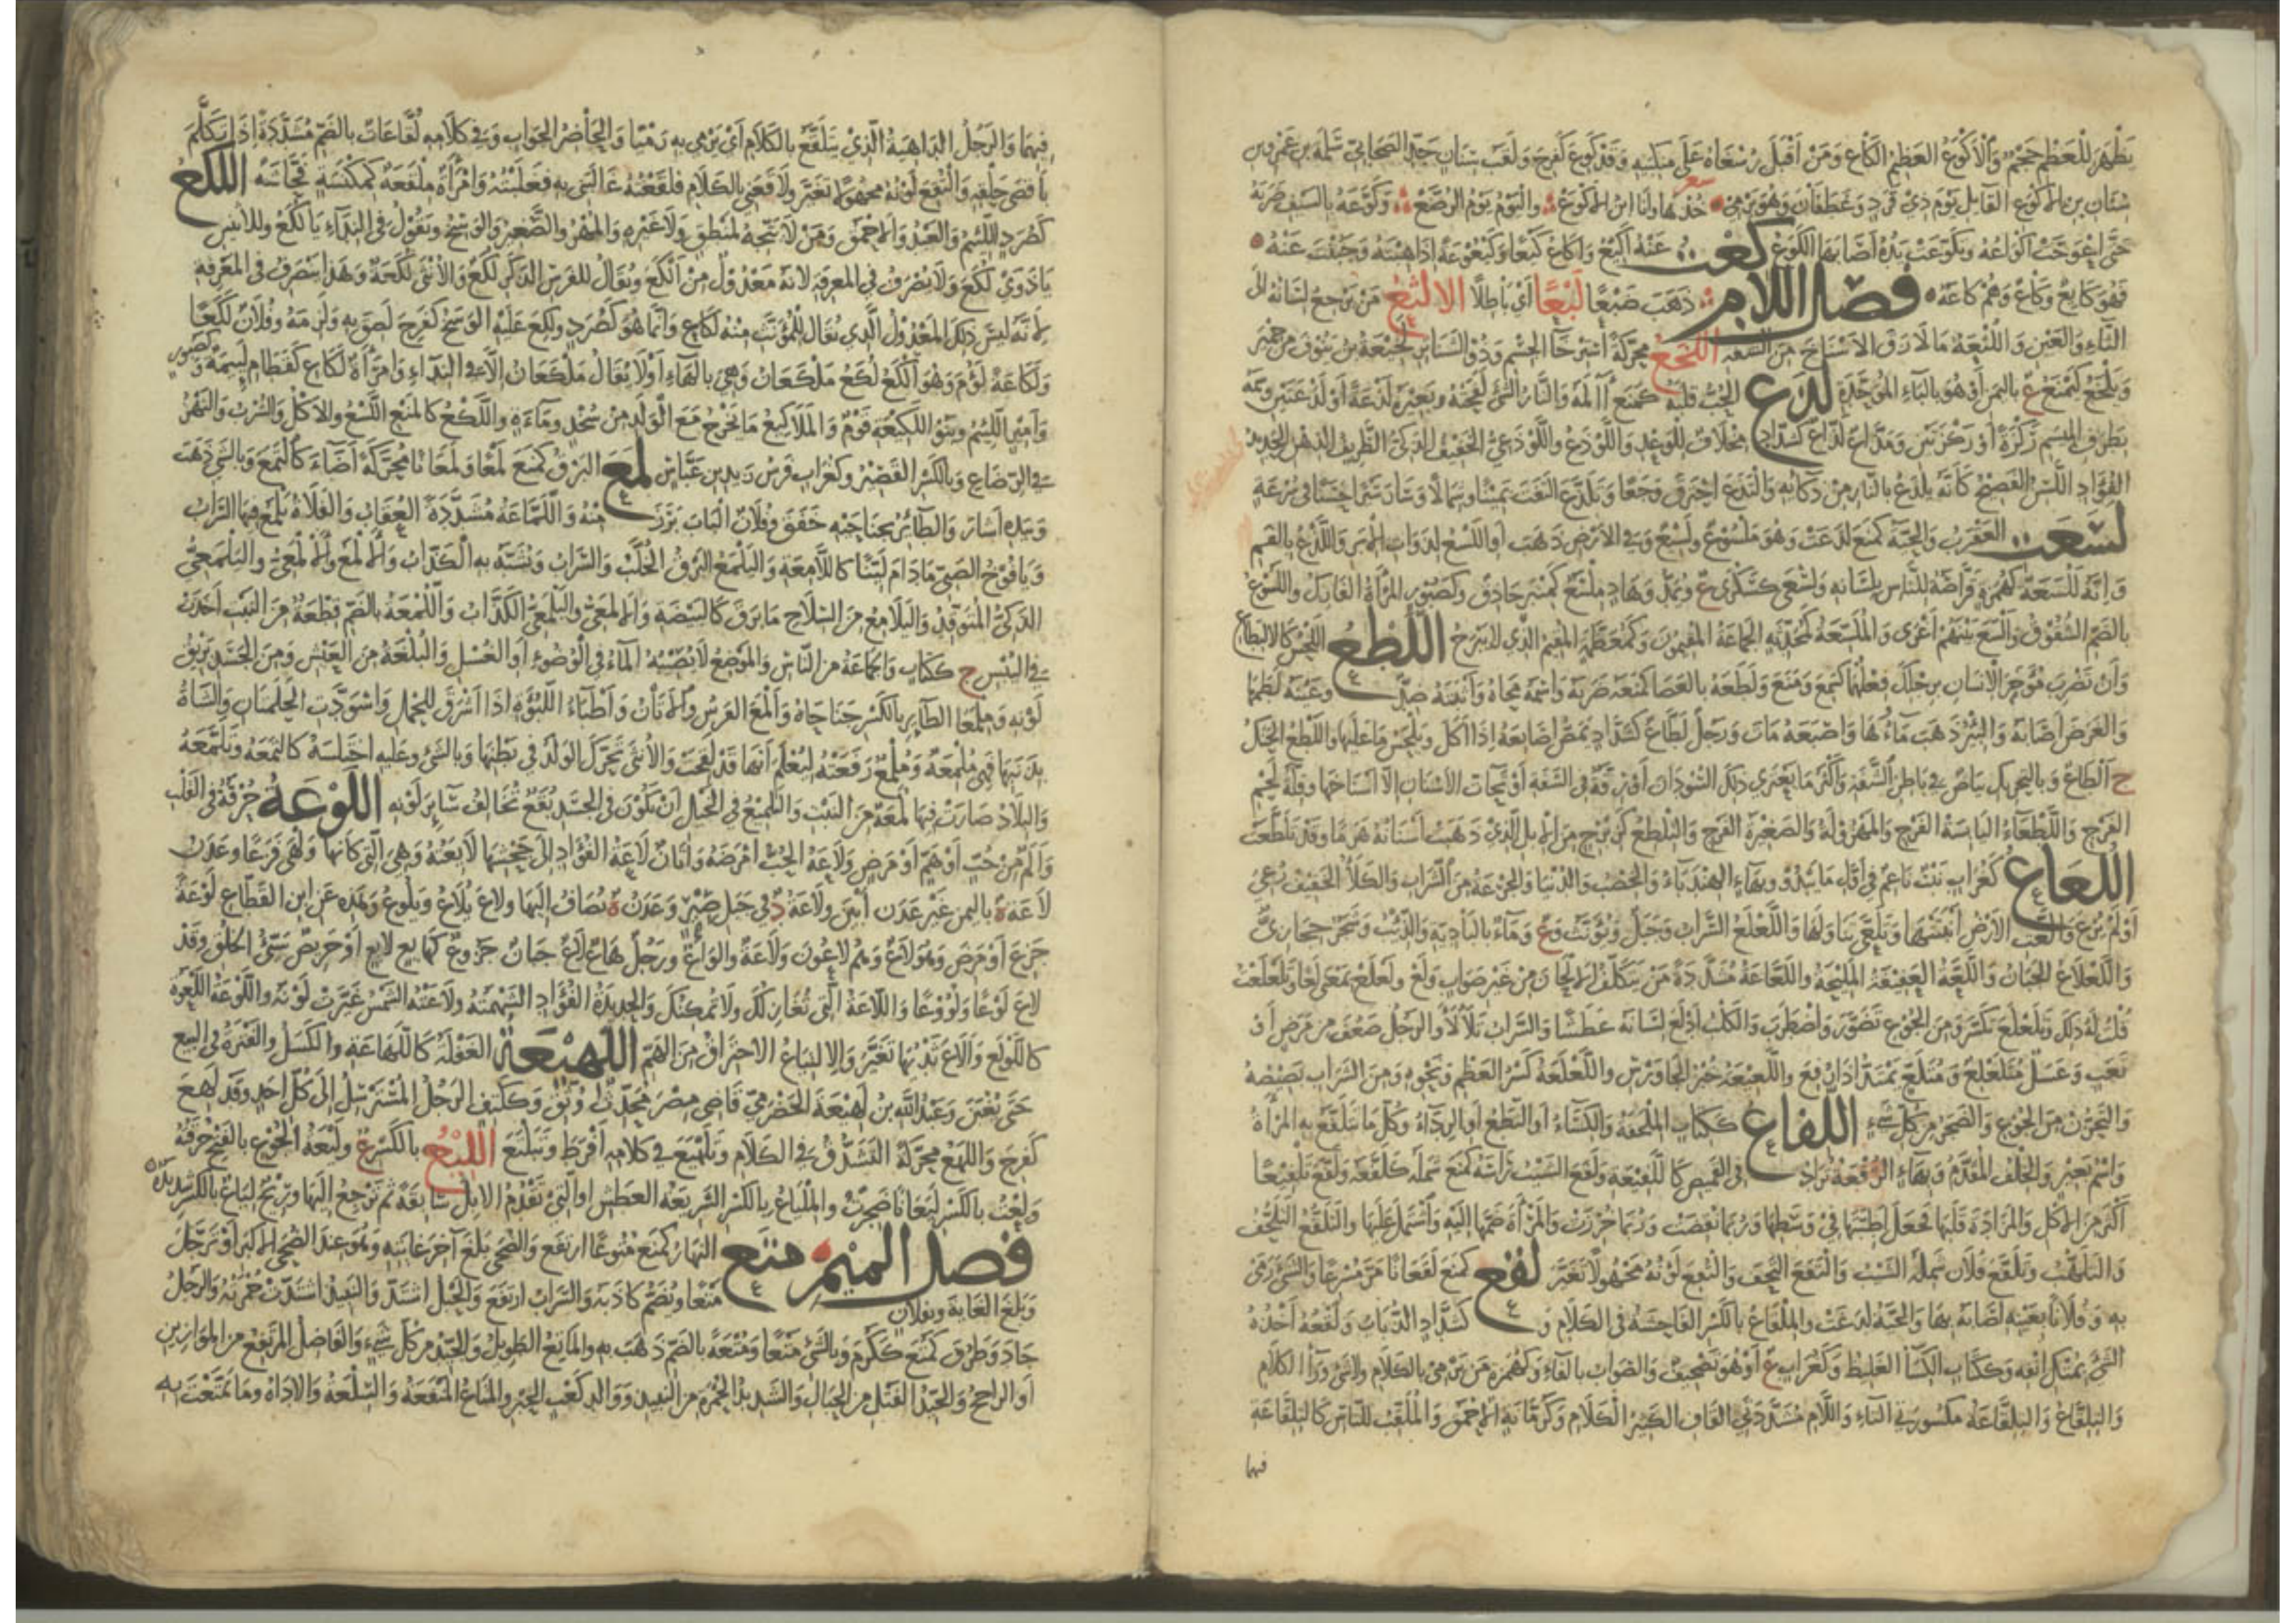 يظهر للعظم حجم والأكوع العظيم الكاع ومن أقبل رسغاه على منكبيه وقد كوع كفرح ولقب سنان جد الصحابي سلمة بن عمرو بن
سنان بن الأكوع القايل يوم ذي قرد وغطفان وهو يرمي خذها وأنا ابن الأكوع واليوم يوم الرضع وكوعه بالسيف ضربه
حتى اعوجت أكواعه وتكوعت يده أصابها الكوع كعت عنه أكيع وأكاع كيعا وكيعوعة إذا هبته وجبنت عنه
فهو كايع وكاع وهم كاعة فصل اللام ذهب ضبعا لبعا أي باطلا الالثغ من يرجع لسانه إلى
الثاء والعين واللثعة ما لازق الاسناخ من الشفه اللخع محركة استرخا الجسم وذو الشناتر لخيعة بن ينوف من حمير
ويلخع كيمنع ع باليمن أو هو بالباء الموحدة لذع الحب قلبه كمنع آلمه والنار الشئ لفحته وبعيره لذعة أو لذعتين وسمه
بطرف الميسم ركزة أو ركزتين ومذاع لذاع كشداد مخلاف للوعد واللوذع واللوذعي الخفيف الذكي الظريف الذهن الحديد
الفؤاد اللسن الفصيح كأنه يلذع بالنار من ذكائه والتذع احترق وجعا وتلذع التفت يمينا وشمالا وسار سيرا حسنا في سرعة
لسعت العقرب والحية كمنع لدغت وهو ملسوع ولسيع وفي الأرض ذهب أو اللسع لذوات الإبر واللدغ بالفم
وإنه للسعة كهمزة قراصة للناس بلسانه ولسعى كسكرى ع ويمد وهاد ملسع كمنبر حاذق وكصبور المرأة الفارك واللسوع
بالضم الشقوق وألسع بينهم أغرى والملسعة كمحدثة الجماعة المقيمون وكمعظمة المقيم الذي لا يبرح اللطع اللحس كالالتطاع
وأن تضرب مؤخر الإنسان برجلك فعلهما كسمع ومنع ولطعه بالعصا كمنعه ضربه واسمه محاه وأثبته ضد وعينه لطمها
والغرض أصابه والبئر ذهب ماؤها وإصبعه مات ورجل لطاع كشداد يمص أصابعه إذا أكل ويلحس ما عليها واللطع الحنك
ج ألطاع وبالتحريك بياض في باطن الشفة وأكثر ما يعتري ذلك السودان أو رقة في الشفة أو تحات الأسنان إلا أسناخها وقلة لحم
الفرج واللطعاء اليابسة الفرج والمهزولة والصغيرة الفرج واللطع كزبرج من الإبل الذي ذهبت أسنانه هرما وقد تلطعت
اللعاع كغراب نبت ناعم في أول ما يبدو وبهاء الهندباء والخصب والدنيا والجرعة من الشراب والكلأ الخفيف رعي
أو لم يرع وألعت الأرض أنبتتها وتلعى تناولها واللعلع السراب وجبل ويؤنث وع وماء بالبادية والذئب وشجر حجازي
واللعلاع الجبان واللعة العفيفة المليحة واللعاعة مشددة من يتكلف الألحان من غير صواب ولع ولعلع بمعنى لعا ولعلعت
قلت له ذلك وتلعلع تكسر ومن الجوع تضور واضطرب والكلب أدلع لسانه عطشا والسراب تلألأ والرجل ضعف من مرض أو
تعب وعسل متلعلع ومتلعع يمتد إذا رفع واللعيعة خبز الجاورس واللعلعة كسر العظم ونحوه ومن السراب بصيصه
والتحزن من الجوع والضجر من كل شيء اللفاع ككتاب الملحفة والكساء أو النطع أو الرداء وكل ما تتلفع به المرأة
واسم بعير والخلف المقدم وبهاء الرقعة تزاد في القميص كاللفيعة ولفع الشيب رأسه كمنع شمله كلفعه ولفع تلفيعا
أكثر من الأكل والمزادة قلبها فجعل أطبتها في وسطها وربما نقضت وربما خرزت والمرأة ضمها إليه واشتمل عليها والتلفع التلحف
والتلهب وتلفع فلان شمله الشيب والتفع التحف والتفع لونه مجهولا تغير لقع كمنع لقعانا مر مسرعا والشئ رمى
به وفلانا بعينه أصابه بها والحية لدغت والملقاع بالكسر الفاحشة في الكلام و كشداد الذباب ولقعه أخذه
الشئ بمتك أنفه وككتاب الكسآ الغليظ وكغراب ع أو هو تصحيف والصواب بالفاء وكهمزة من يرمي بالكلام ولا شئ ورآ الكلام
والتلقاع والتلقاعة مكسورتي التاء واللام مشددتي القاف الكثير الكلام وكرمانة الأحمق والملقب للناس كالتلقاعة
فيهما
فيهما والرجل الداهية الذي يتلقع بالكلام أي يرمي به رميا والحاضر الجواب وفي كلامه لقاعات بالضم مشددة إذا تكلم
بأقصى حلقه والتقع لونه مجهولا تغير ولاقعني بالكلام فلقعته غالبني به فغلبته وامرأة ملقعة كمكنسة فحاشة اللكع
كصرد اللئيم والعبد والأحمق ومن لا يتجه لمنطق ولا غيره والمهر والصغير والوسخ وتقول في النداء يا لكع وللاثنين
يا ذوي لكع ولا يصرف في المعرفة لأنه معدول من ألكع ويقال للفرس الذكر لكع والأنثى لكعة وهذا ينصرف في المعرفة
لأنه ليس ذلك المعدول الذي يقال للمؤنث منه لكاع وإنما هو كصرد ولكع عليه الوسخ كفرح لصق به ولزمه وفلان لكعا
ولكاعة لؤم وهو ألكع لكع ملكعان وهي بالهاء أو لا يقال ملكعان إلا في النداء وامرأة لكاع كقطام لئيمة وكصبور
وأمير اللئيم وبنو اللكيعة قوم والملاكيع ما يخرج مع الولد من سخد وماء وغيره واللكع كالمنع اللسع والأكل والشرب والنهز
في الرضاع وبالكسر القصير وكغراب فرس زيد بن عباس لمع البرق كمنع لمعا ولمعانا محركة أضاء كالتمع وبالشئ ذهب
وبيده أشار والطائر بجناحيه خفق وفلان الباب برز منه واللماعة مشددة العقاب والفلاة يلمع فيها السراب
ويافوخ الصبي ما دام لينا كاللامعة واليلمع البرق الخلب والسراب ويشبه به الكذاب والألمع والألمعي واليلمعي
الذكي المتوقد واليلامع من السلاح ما برق كالبيضة والألمعي واليلمعي الكذاب واللمعة بالضم قطعة من النبت أخذت
في اليبس ج ككتاب والجماعة من الناس والموضع لا يصيبه المآء في الوضوء أو الغسل والبلغة من العيش ومن الجسد بريق
لونه وملمعا الطاير بالكسر جناحاه وألمع الفرس والأتان وأطباء اللبؤة إذا أشرق للحمل واسودت الحلمتان والشاة
بذنبها فهي ملمعة وملمع رفعته ليعلم أنها قد لقحت والأنثى تحرك الولد في بطنها وبالشئ وعليه اختلسه كالتمعه وتلمعه
والبلاد صارت فيها لمعة من النبت والتلميع في الخيل أن يكون في الجسد بقع تخالف سائر لونه اللوعة حرقة في القلب
وألم من حب أو هم أو مرض ولاعه الحب أمرضه وأتان لاعة الفؤاد إلى جحشها لائعته وهي التي كأنها ولهى فزعا وعدن
لاعة ة باليمن غير عدن أبين ولاعة د في جبل صبر وعدن ة تضاف إليها ولاع يلاع ويلوع وهذه عن ابن القطاع لوعة
جزع أو مرض وهو لاع وهم لاعون ولاعة وألواع ورجل هاع لاع جبان جزوع كهايع لايع أو حريص سيئ الخلق وقد
لاع لوعا ولووعا واللاعة التي تغازلك ولا تمكنك والحديدة الفؤاد الشهمة ولاعته الشمس غيرت لونه واللوعة اللعوة
كاللولع وألاع ثديها تغير والالتياع الاحتراق من الهم اللهيعة الغفلة كاللهاعة والكسل والفترة في البيع
حتى يغبن وعبد الله بن لهيعة الحضرمي قاضي مصر محدث وثق وككتف الرجل المسترسل إلى كل أحد وقد لهع
كفرح واللهع محركة التشدق في الكلام وتلهيع في كلامه أفرط وتبلتع الليع بالكسر ع وليعة الجوع بالفتح حرقته
ولعت بالكسر ليعانا ضجرت والملياع بالكسر السريعة العطش أو التي تقدم الإبل سابقة ثم ترجع إليها وريح لياع بالكسر شديدة
فصل الميم متع النهار كمنع متوعا ارتفع والضحى بلغ آخر غايته وهو عند الضحى الأكبر أو ترجل
وبلغ الغاية وبفلان متعا ويضم كاذبه والسراب ارتفع والحبل اشتد والنبيذ اشتدت حمرته والرجل
جاد وظرف كمتع ككرم وبالشئ متعا ومتعة بالضم ذهب به والماتع الطويل والجيد من كل شيء والفاضل المرتفع من الموازين
أو الراجح والجيد الفتل من الحبال والشديد الحمرة من النبيذ ووالد كعب الحبر والمتاع المنفعة والسلعة والأداة وما تمتعت به